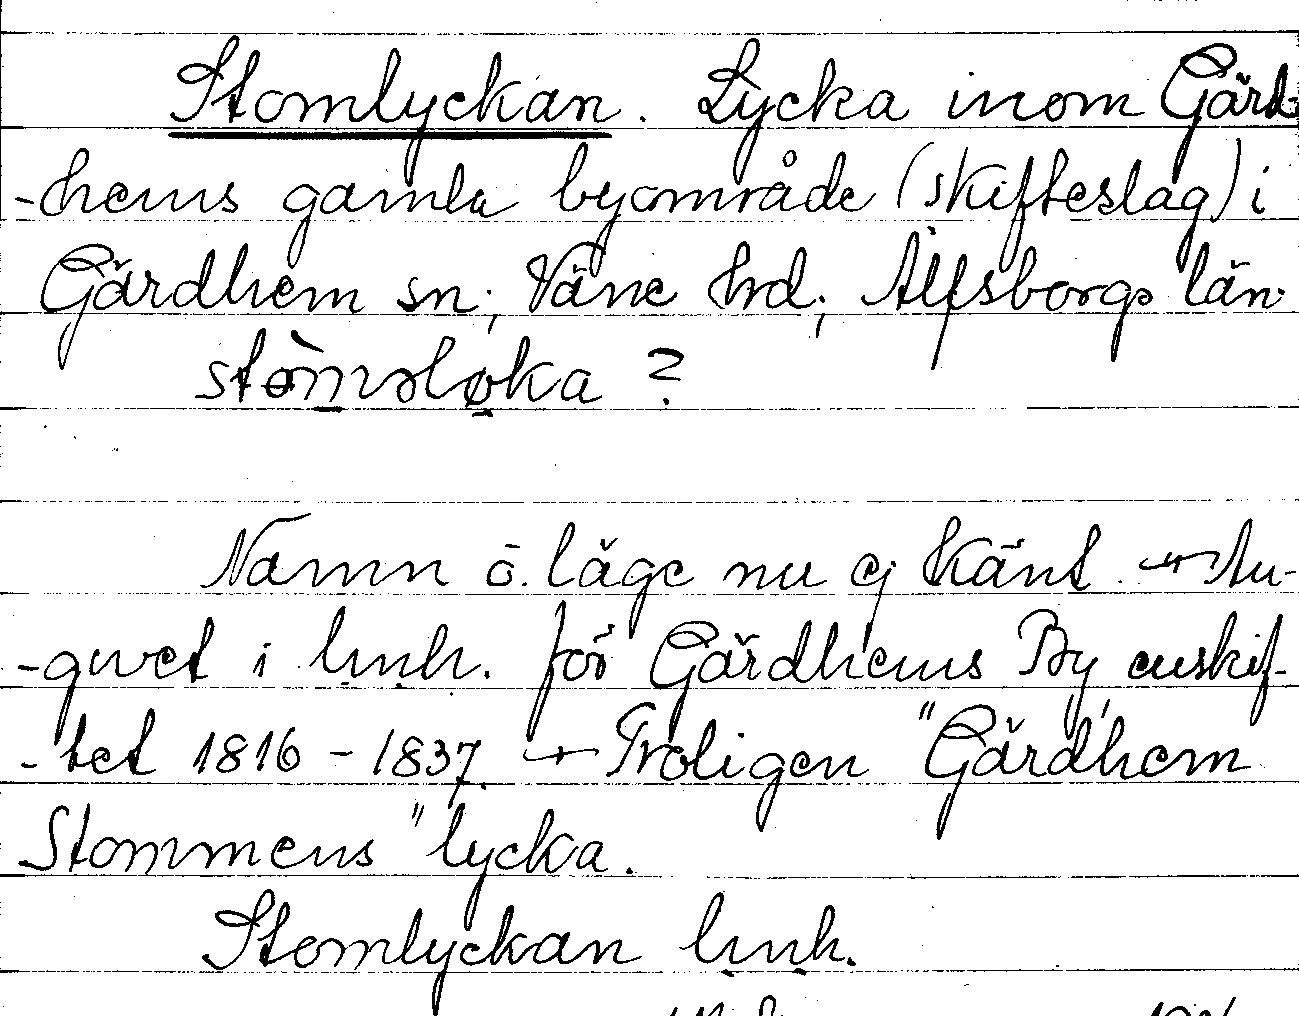 Stomlyckan. Lycka inom Gärd-
-hems gamla byområde (skifteslag) i
Gärdhem sn; Väne hrd; Älfsborgs län.
stòmsløka ?
Namn o. läge nu ej känt. — An-
-givet i lmh. för Gärdhems By enskif-
-tet 1816 - 1837. — Troligen "Gärdhem
Stommens" lycka.
Stomlyckan lmh.